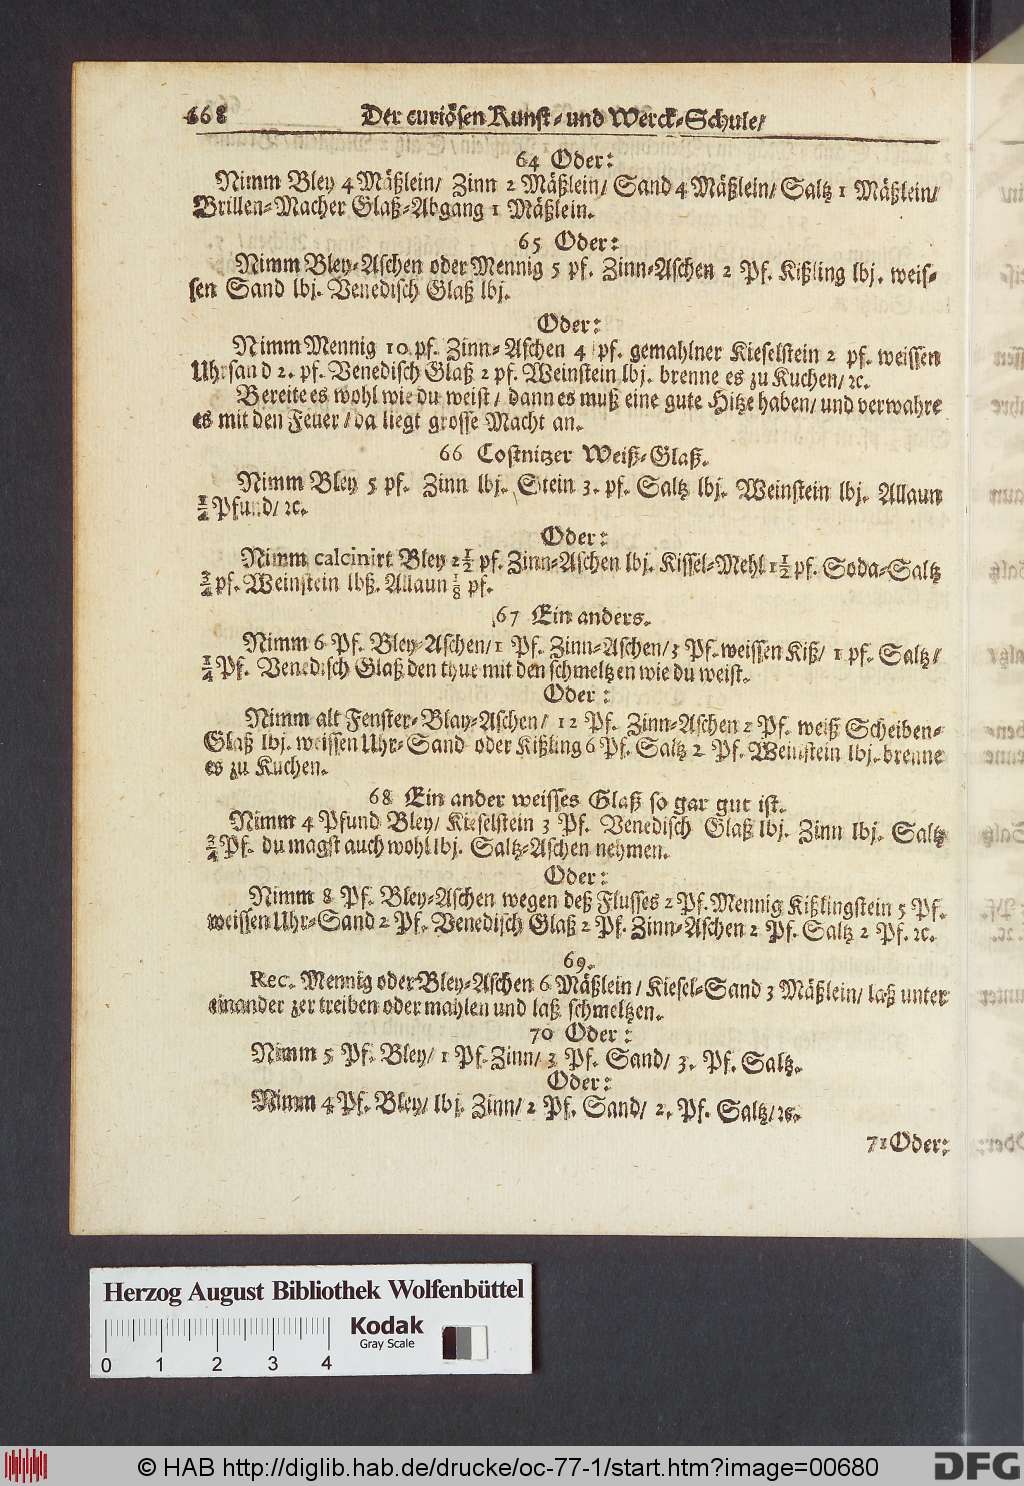 668 Der curiösen Kunst- und Werck-Schule/
64 Oder:
Nimm Bley 4 Mäßlein/ Zinn 2 Mäßlein/ Sand 4 Mäßlein/ Saltz 1 Mäßlein/
Brillen-Macher Glaß-Abgang 1 Mäßlein.
65 Oder:
Nimm Bley-Aschen oder Mennig 5 pf. Zinn-Aschen 2 Pf. Kißling lbj. weis-
sen Sand lbj. Venedisch Glaß lbj.
Oder:
Nimm Mennig 10 pf. Zinn-Aschen 4 pf. gemahlner Kieselstein 2 pf. weissen
Uhrsand 2. pf. Venedisch Glaß 2 pf. Weinstein lbj. brenne es zu Kuchen/ ꝛc.
Bereite es wohl wie du weist/ dann es muß eine gute Hitze haben/ und verwahre
es mit den Feuer/ da liegt grosse Macht an.
66 Costnitzer Weiß-Glaß.
Nimm Bley 5 pf. Zinn lbj. Stein 3. pf. Saltz lbj. Weinstein lbj. Allaun
½ Pfund/ ꝛc.
Oder:
Nimm calcinirt Bley 2½ pf. Zinn-Aschen lbj. Kissel-Mehl 1½ pf. Soda-Saltz
¾ pf. Weinstein lbß. Allaun ⅛ pf.
67 Ein anders.
Nimm 6 Pf. Bley-Aschen/ 1 Pf. Zinn-Aschen/ 3 Pf. weissen Kiß/ 1 pf. Saltz/
¼ Pf. Venedisch Glaß den thue mit den schmeltzen wie du weist.
Oder:
Nimm alt Fenster-Blay-Aschen/ 12 Pf. Zinn-Aschen 2 Pf. weiß Scheiben-
Glaß lbj. weissen Uhr-Sand oder Kißling 6 Pf. Saltz 2 Pf. Weinstein lbj. brenne
es zu Kuchen.
68 Ein ander weisses Glaß so gar gut ist.
Nimm 4 Pfund Bley/ Kieselstein 3 Pf. Venedisch Glaß lbj. Zinn lbj. Saltz
¾ Pf. du magst auch wohl lbj. Saltz-Aschen nehmen.
Oder:
Nimm 8 Pf. Bley-Aschen wegen deß Flusses 2 Pf. Mennig Kißlingstein 5 Pf.
weissen Uhr-Sand 2 Pf. Venedisch Glaß 2 Pf. Zinn-Aschen 2 Pf. Saltz 2 Pf. ꝛc.
69.
Rec. Mennig oder Bley-Aschen 6 Mäßlein/ Kiesel-Sand 3 Mäßlein/ laß unter
einander zertreiben oder mahlen und laß schmeltzen.
70 Oder:
Nimm 5 Pf. Bley/ 1 Pf. Zinn/ 3 Pf. Sand/ 3. Pf. Saltz.
Oder:
Nimm 4 Pf. Bley/ lbj. Zinn/ 2 Pf. Sand/ 2. Pf. Saltz/ ꝛc.
71 Oder:
Herzog August Bibliothek Wolfenbüttel
Kodak
Gray Scale
0 1 2 3 4
© HAB http://diglib.hab.de/drucke/oc-77-1/start.htm?image=00680
DFG